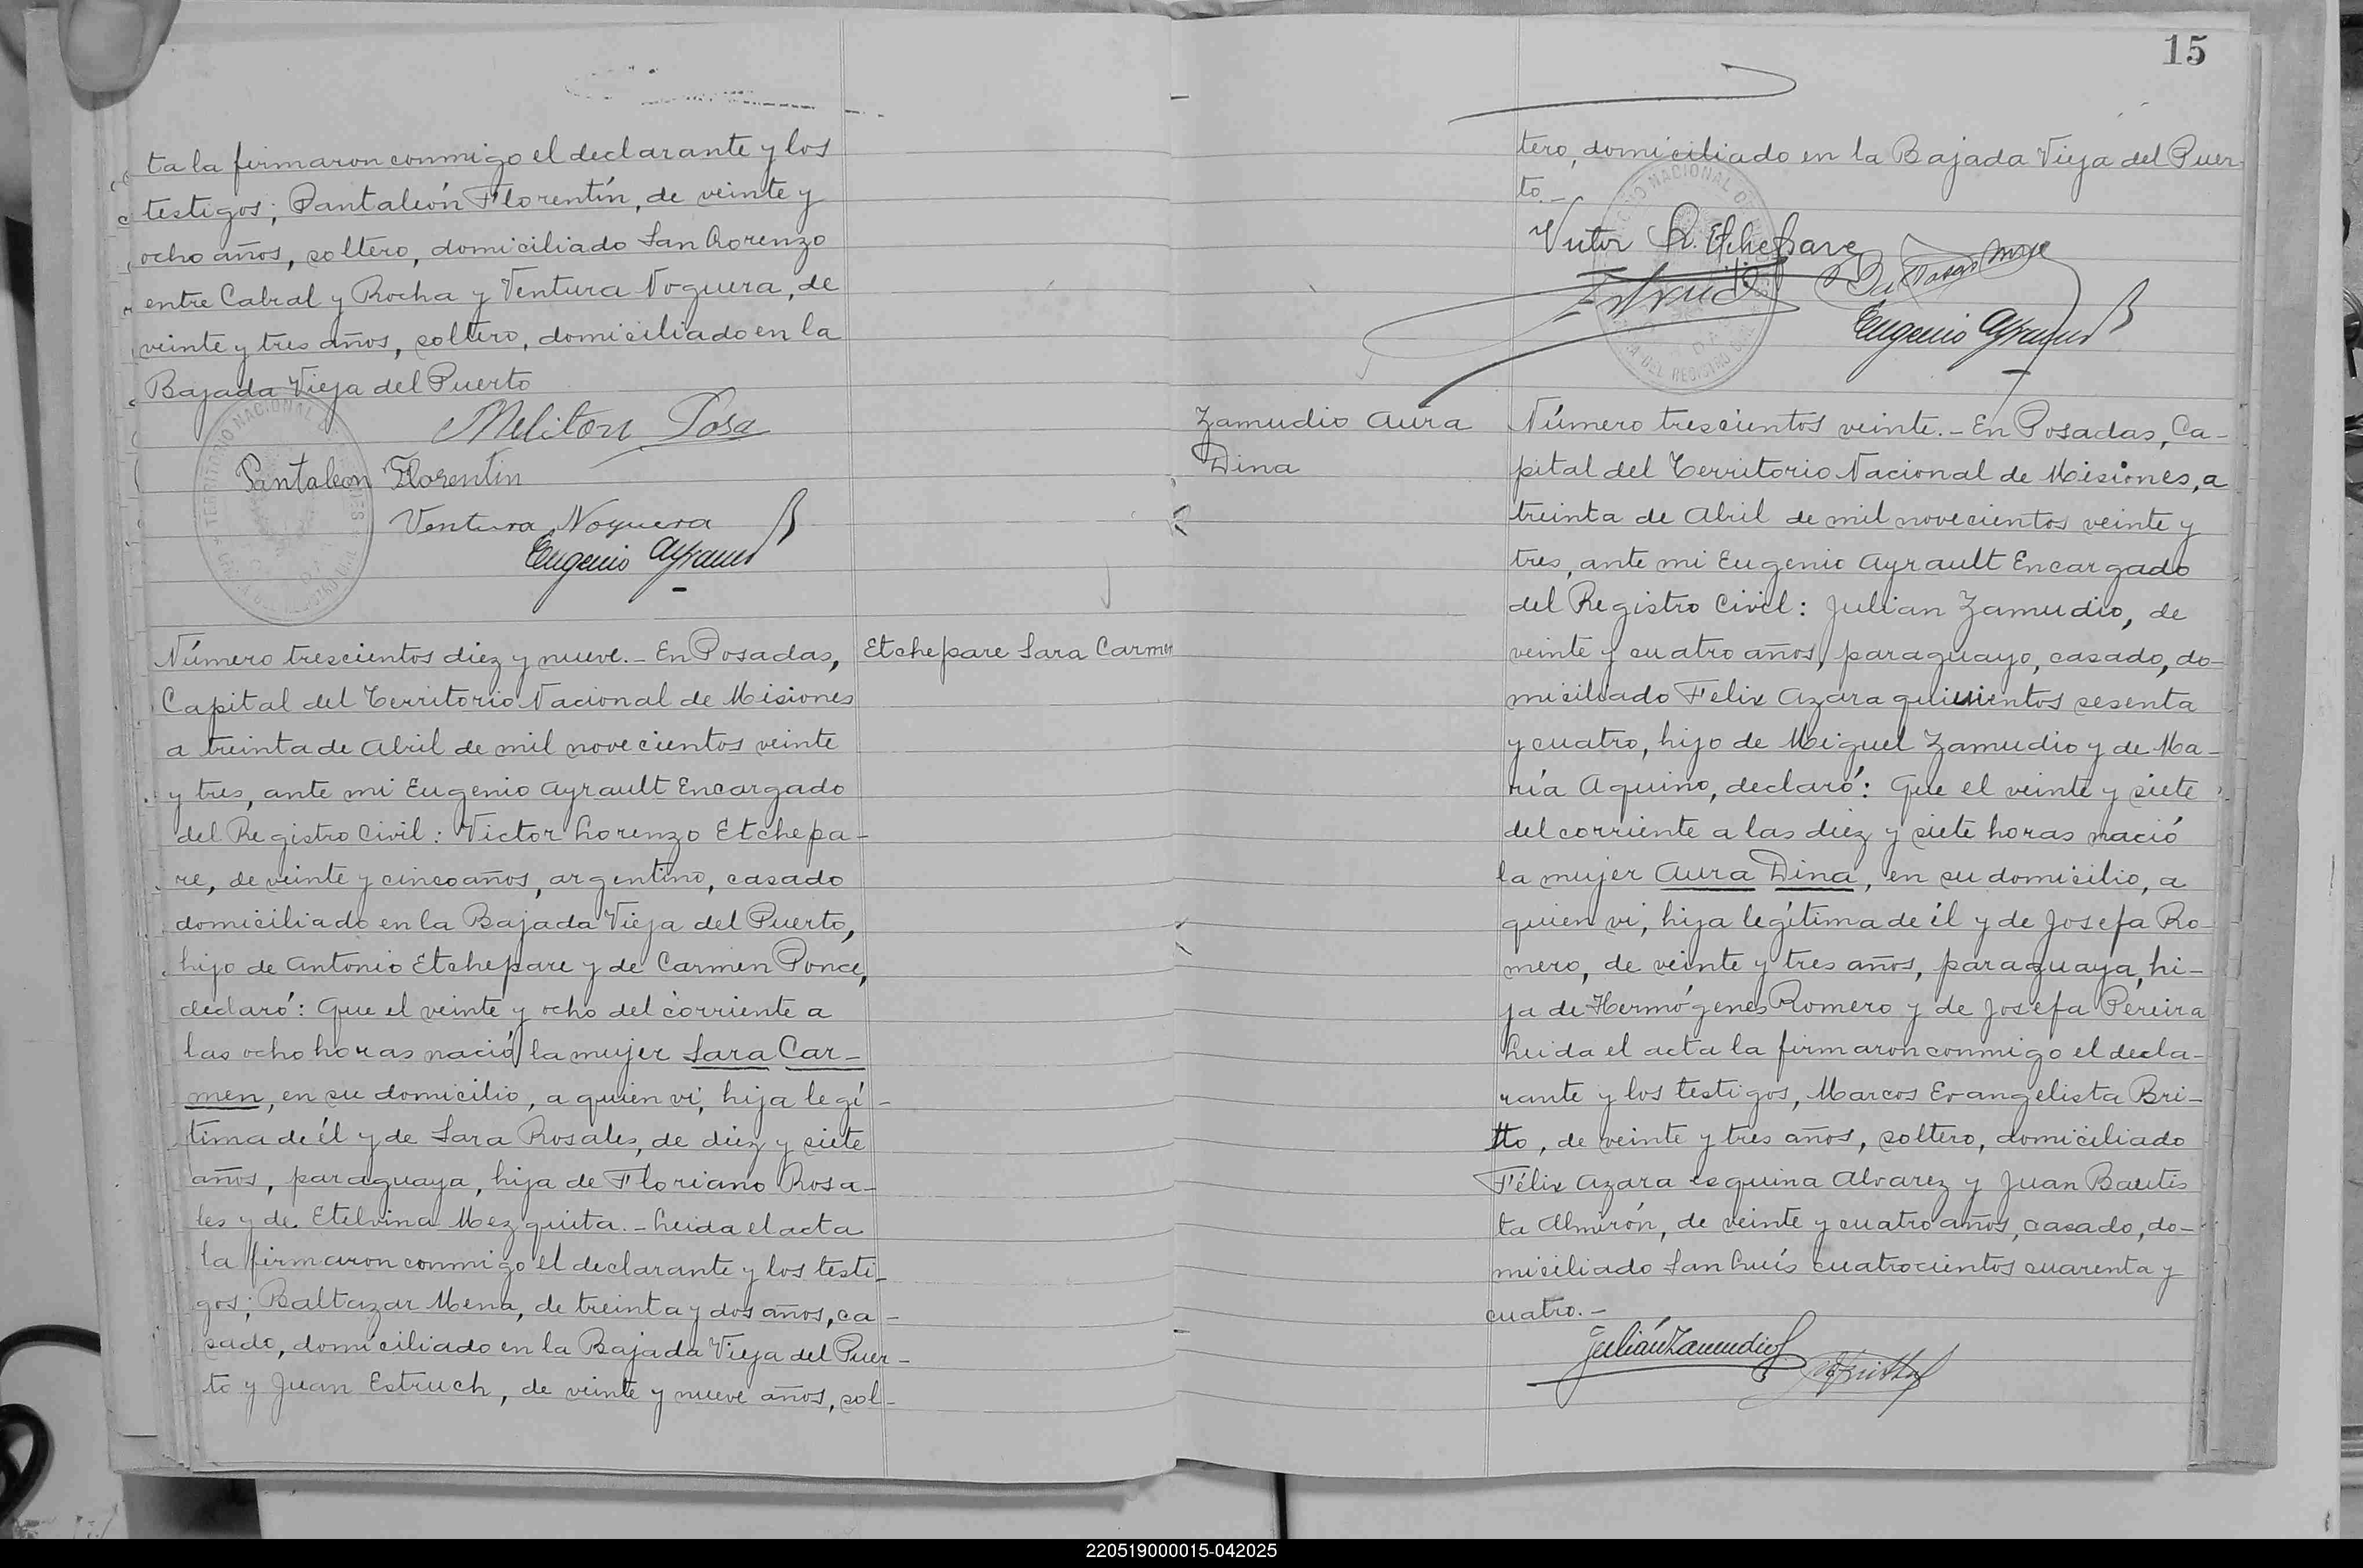 ta la firmaron conmigo el declarante y los
testigos; Pantaleón Florentín, de veinte y
ocho años, soltero, domiciliado San Lorenzo
entre Cabral y Rocha y Ventura Noguera, de
veinte y tres años, soltero, domiciliado en la
Bajada Vieja del Puerto
Meliton Sosa
Pantaleon Florentin
Ventura Noguera
Eugenio Ayrault
Número trescientos diez y nueve.- En Posadas,
Capital del Territorio Nacional de Misiones
a treinta de Abril de mil novecientos veinte
y tres, ante mi Eugenio Ayrault Encargado
del Registro Civil: Victor Lorenzo Etchepa-
re, de veinte y cinco años, argentino, casado
domiciliado en la Bajada Vieja del Puerto,
hijo de Antonio Etchepare y de Carmen Ponce,
declaró: Que el veinte y ocho del corriente a
las ocho horas nació la mujer Sara Car-
men, en su domicilio, a quien vi, hija legí-
tima de él y de Sara Rosales, de diez y siete
años, paraguaya, hija de Floriano Rosa-
les y de Etelvina Mezquita.- Leida el acta
la firmaron conmigo el declarante y los testi-
gos; Baltazar Mena, de treinta y dos años, ca-
sado, domiciliado en la Bajada Vieja del Puer-
to y Juan Estruch, de veinte y nueve años, sol-
Etchepare Sara Carmen
15
tero, domiciliado en la Bajada Vieja del Puer-
to.-
Victor L. Etchepare
Eugenio Ayrault
Zamudio Aura
Dina
Número trescientos veinte.- En Posadas, Ca-
pital del Territorio Nacional de Misiones, a
treinta de Abril de mil novecientos veinte y
tres, ante mi Eugenio Ayrault Encargado
del Registro Civil: Julian Zamudio, de
veinte y cuatro años, paraguayo, casado, do-
miciliado Felix Azara quinientos sesenta
y cuatro, hijo de Miguel Zamudio y de Ma-
ría Aquino, declaró: Que el veinte y siete
del corriente a las diez y siete horas nació
la mujer Aura Dina, en su domicilio, a
quien vi, hija legítima de él y de Josefa Ro-
mero, de veinte y tres años, paraguaya, hi-
ja de Hermógenes Romero y de Josefa Pereira
Leida el acta la firmaron conmigo el decla-
rante y los testigos, Marcos Evangelista Bri-
tto, de veinte y tres años, soltero, domiciliado
Félix Azara esquina Alvarez y Juan Bautis
ta Almirón, de veinte y cuatro años, casado, do-
miciliado San Luís cuatrocientos cuarenta y
cuatro.-
Julián Zamudio
220519000015-042025